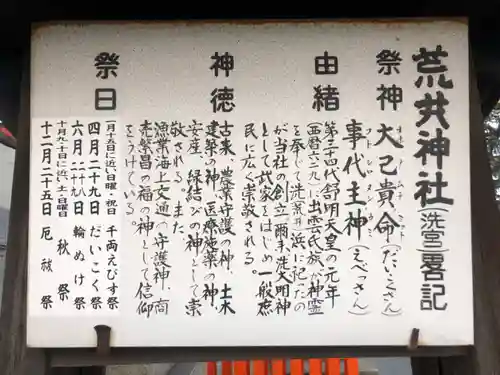 荒井神社(洗宮)畧記
祭神 大己貴命(だいこくさん)
事代主神(えべっさん)
由緒
第三十四代舒明天皇の元年
(西暦六二九)に出雲氏族が神霊
を奉じて洗(荒井)浜に祀ったの
が当社の創立 爾来、洗大明神
として武家をはじめ一般庶
民に広く崇敬される。
神徳
古来、農業守護の神、土木
建築の神、医療施薬の神、
安産、縁結びの神として崇
敬される。また、
漁業海上交通の守護神、商
売繁昌の福の神として信仰
をうけている。
祭日
一月十五日に近い日曜・祝日 千両えびす祭
四月二十九日 だいこく祭
六月二十九日 輪ぬけ祭
十月九・十日に近い土・日曜 秋祭
十二月二十五日 厄祓祭